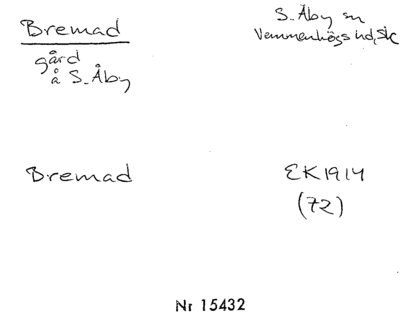 Bremad
S. Åby sn
Vemmenhögs hd, Sk
gård
å S. Åby
Bremad
EK1914
(72)
Nr 15432